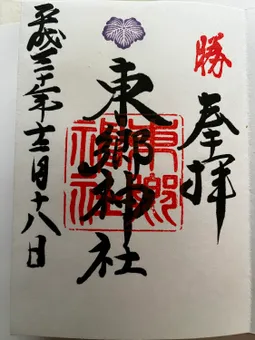 勝
奉拝
東郷神社
東郷神社
平成三十年十二月十八日